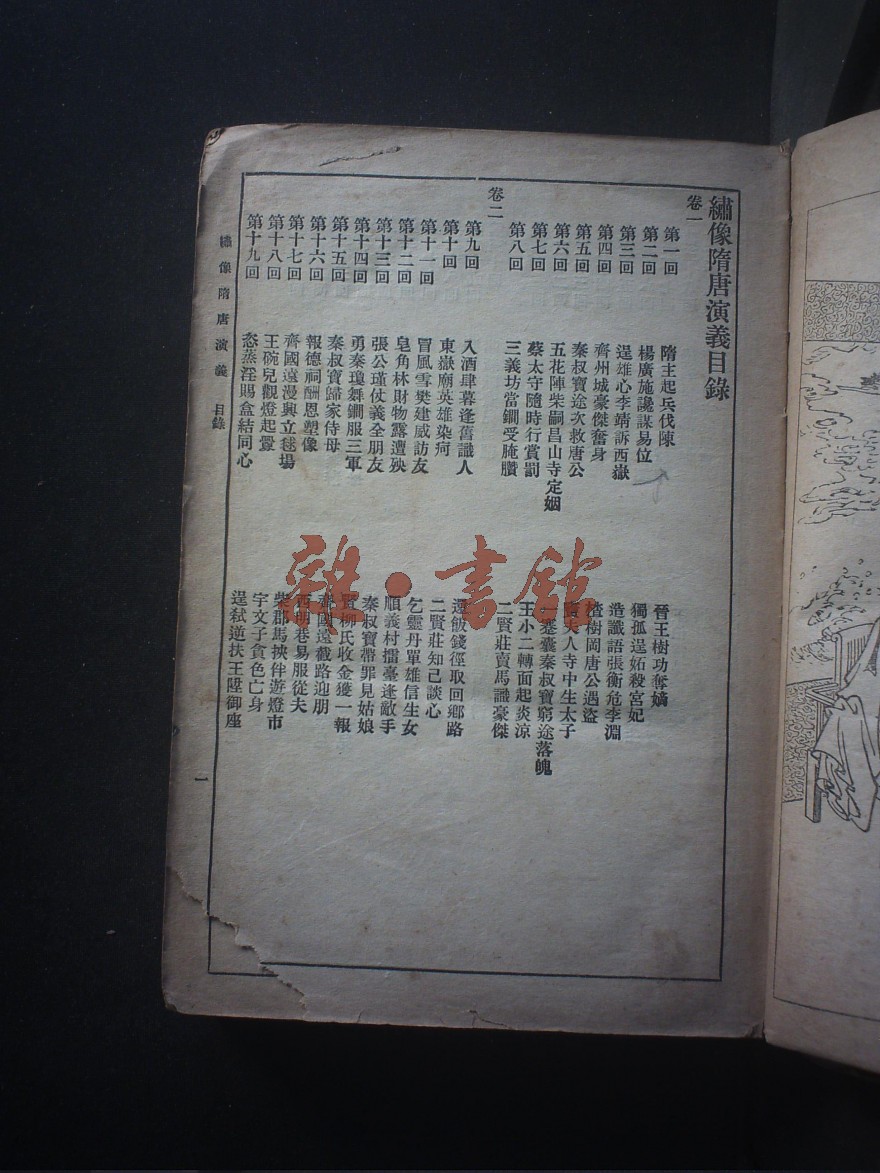 繡像隋唐演義目錄
卷一
第一回 隋主起兵伐陳 晉王樹功奪嫡
第二回 楊廣施讒謀易位 獨孤逞妬殺宮妃
第三回 逞雄心李靖訴西嶽 造讖語張衡危李淵
第四回 齊州城豪傑奮身 楂樹岡唐公遇盜
第五回 秦叔寶途次救唐公 竇夫人寺中生太子
第六回 五花陣柴嗣昌山寺定姻 一蹇囊秦叔寶窮途落魄
第七回 蔡太守隨時行賞罰 王小二轉面起炎涼
第八回 三義坊當鐧受腌臢 二賢莊賣馬識豪傑
卷二
第九回 入酒肆暮逢舊識人 還飯錢徑取回鄉路
第十回 東嶽廟英雄染疴 二賢莊知己談心
第十一回 冒風雪樊建威訪友 乞靈丹單雄信生女
第十二回 皂角林財物露遭殃 順義村擂臺逢敵手
第十三回 張公瑾仗義全朋友 秦叔寶帶罪見姑娘
第十四回 勇秦瓊舞鐧服三軍 賢柳氏收金獲一報
第十五回 秦叔寶歸家侍母 齊國遠截路迎朋
第十六回 報德祠酬恩塑像 西明巷易服從夫
第十七回 齊國遠漫興立毬場 柴郡馬挾伴遊燈市
第十八回 王碗兒觀燈起釁 宇文子貪色亡身
第十九回 恣蒸淫賜盒結同心 逞弒逆扶王陞御座
繡像隋唐演義 目錄
一
雜·書館